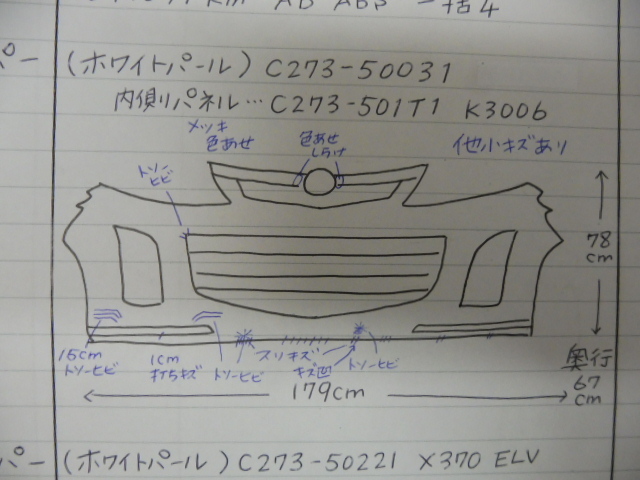 AB ABS 一括4
パー (ホワイトパール) C273-50031
内側リパネル… C273-501T1 K3006
メッキ
色あせ
色あせ
しらけ
他小キズあり
トソー
ヒビ
78
cm
15cm
トソーヒビ
1cm
打ちキズ
トソーヒビ
スリキズ
キズ凹
トソーヒビ
179cm
奥行
67
cm
パー (ホワイトパール) C273-50221 X370 ELV